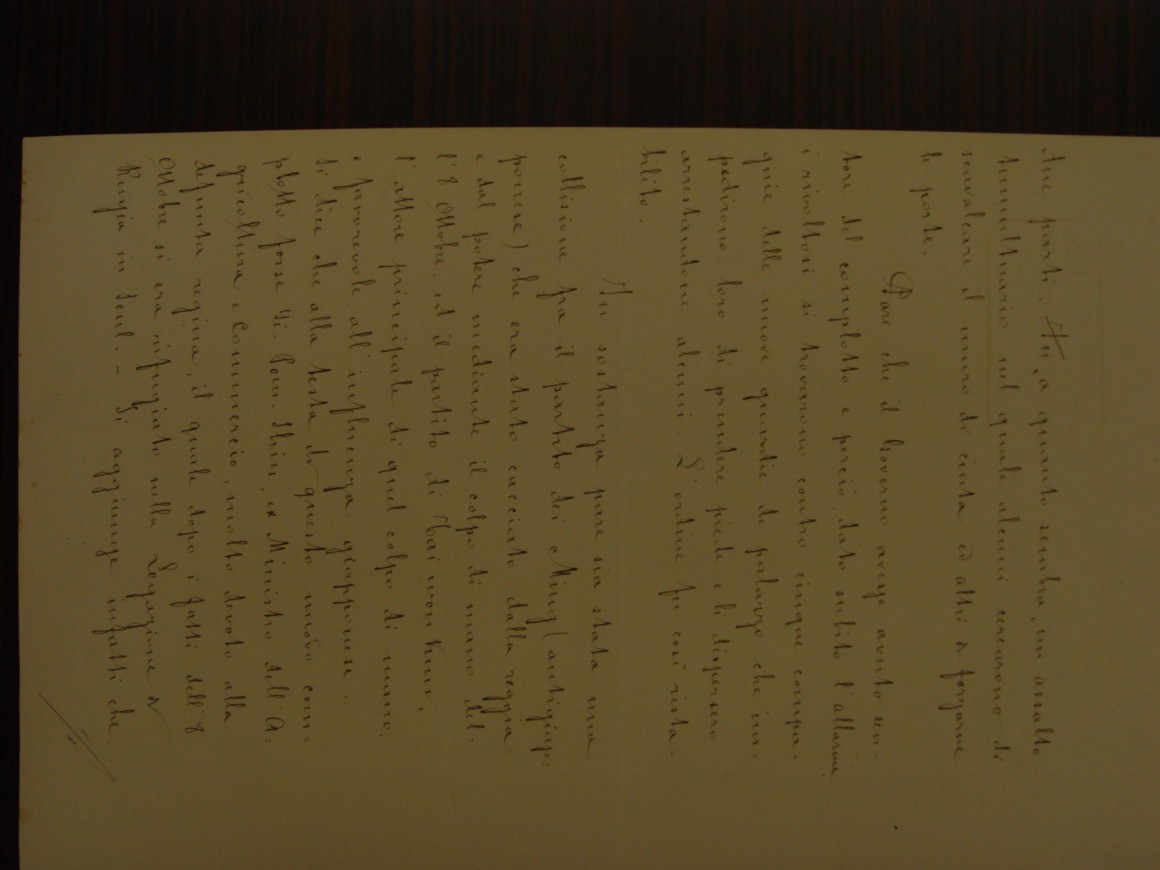 due parti. Fu, a quanto sembra, un assalto
tumultuario nel quale alcuni cercarono di
scavalcare il muro di cinta ed altri di forzarne
le porte.
Pare che il Governo avesse avuto sen-
tore del complotto e perciò, dato subito l'allarme
i rivoltosi si trovarono contro cinque compa-
gnie delle nuove guardie di palazzo che im-
pedirono loro di prendere piede e li dispersero
arrestandone alcuni. L'ordine fu così rista-
bilito.
In sostanza pare sia stata una
collisione fra il partito dei Ming (antigiap-
ponese) che era stato cacciato dalla reggia
e dal potere mediante il colpo di mano del-
l'8 Ottobre, ed il partito di Tai won Kun,
l'attore principale di quel colpo di mano,
e favorevole all'influenza giapponese.
Si dice che alla testa di questo nuovo com-
plotto fosse Yi-Pom-Shin, ex Ministro dell'A-
gricoltura e Commercio, molto devoto alla
defunta regina, il quale dopo i fatti dell'8
Ottobre si era rifugiato nella Legazione di
Russia in Seul. - Si aggiunge infatti che